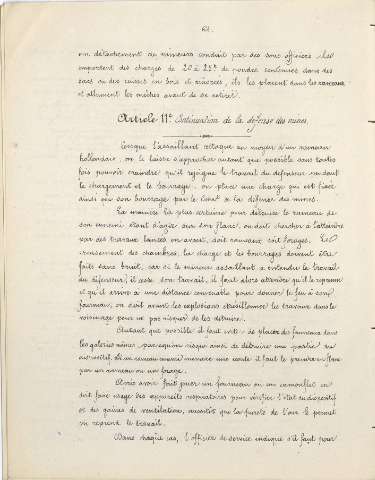 62.
un détachement de mineurs conduit par des sous officiers. Les
emportent des charges de 20 à 25k de poudre contenues dans des
sacs ou des caisses en bois et amorcées, ils les placent dans les rameaux
et allument les mèches avant de se retirer.
Article 11e Continuation de la défense des mines
Lorsque l'assaillant attaque au moyen d'un rameau
hollandais, on le laisse s'approcher autant que possible sans toute
fois pouvoir craindre qu'il rejoigne le travail du défenseur
le chargement et le bourrage, on place une charge qui est fixée
ainsi que son bourrage par le Comt de la défense des mines.
La manière la plus certaine pour détruire le rameau de
son ennemi étant d'agir sur son flanc, on doit chercher à l'atteindre
par des travaux lancés en avant, soit rameaux soit forages. Le
creusement des chambres, la charge et les bourrages doivent être
faits sans bruit, car si le mineur assaillant a entendu le travail
du défenseur, il cesse son travail, il faut alors attendre qu'il le reprenne
et qu'il arrive à une distance convenable pour donner le feu à son
fourneau, on doit avant les explosions surveiller les travaux dans le
voisinage pour ne pas risquer de les détruire.
Autant que possible il faut éviter de placer des fourneaux dans
les galeries mêmes, parce qu'on risque ainsi de détruire une partie du
dispositif. Si un rameau ennemi menace une écoute il faut le prendre en flanc
par un rameau ou un forage.
Après avoir fait jouer un fourneau ou un camouflet on
doit faire usage des appareils respiratoires pour vérifier l'état du dispositif
et des gaines de ventilation, aussitôt que la pureté de l'air le permet
on reprend le travail.
Dans chaque cas, l'officier de service indique s'il faut pour